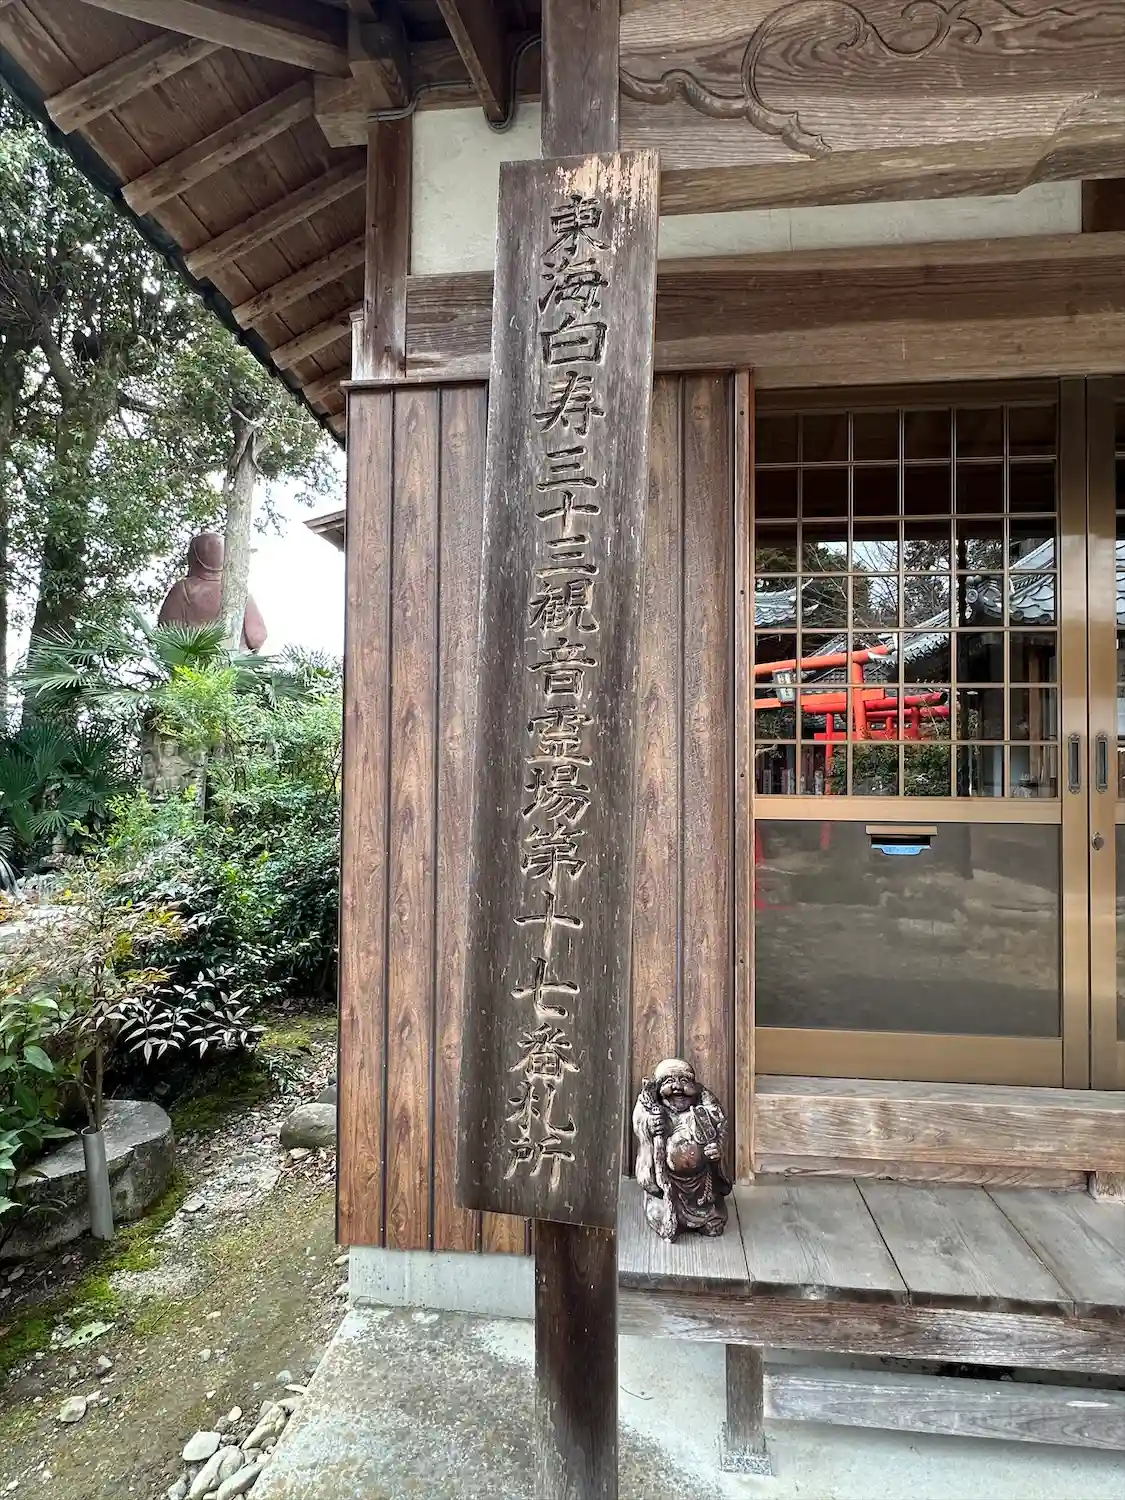 東海白寿三十三観音霊場第十七番札所